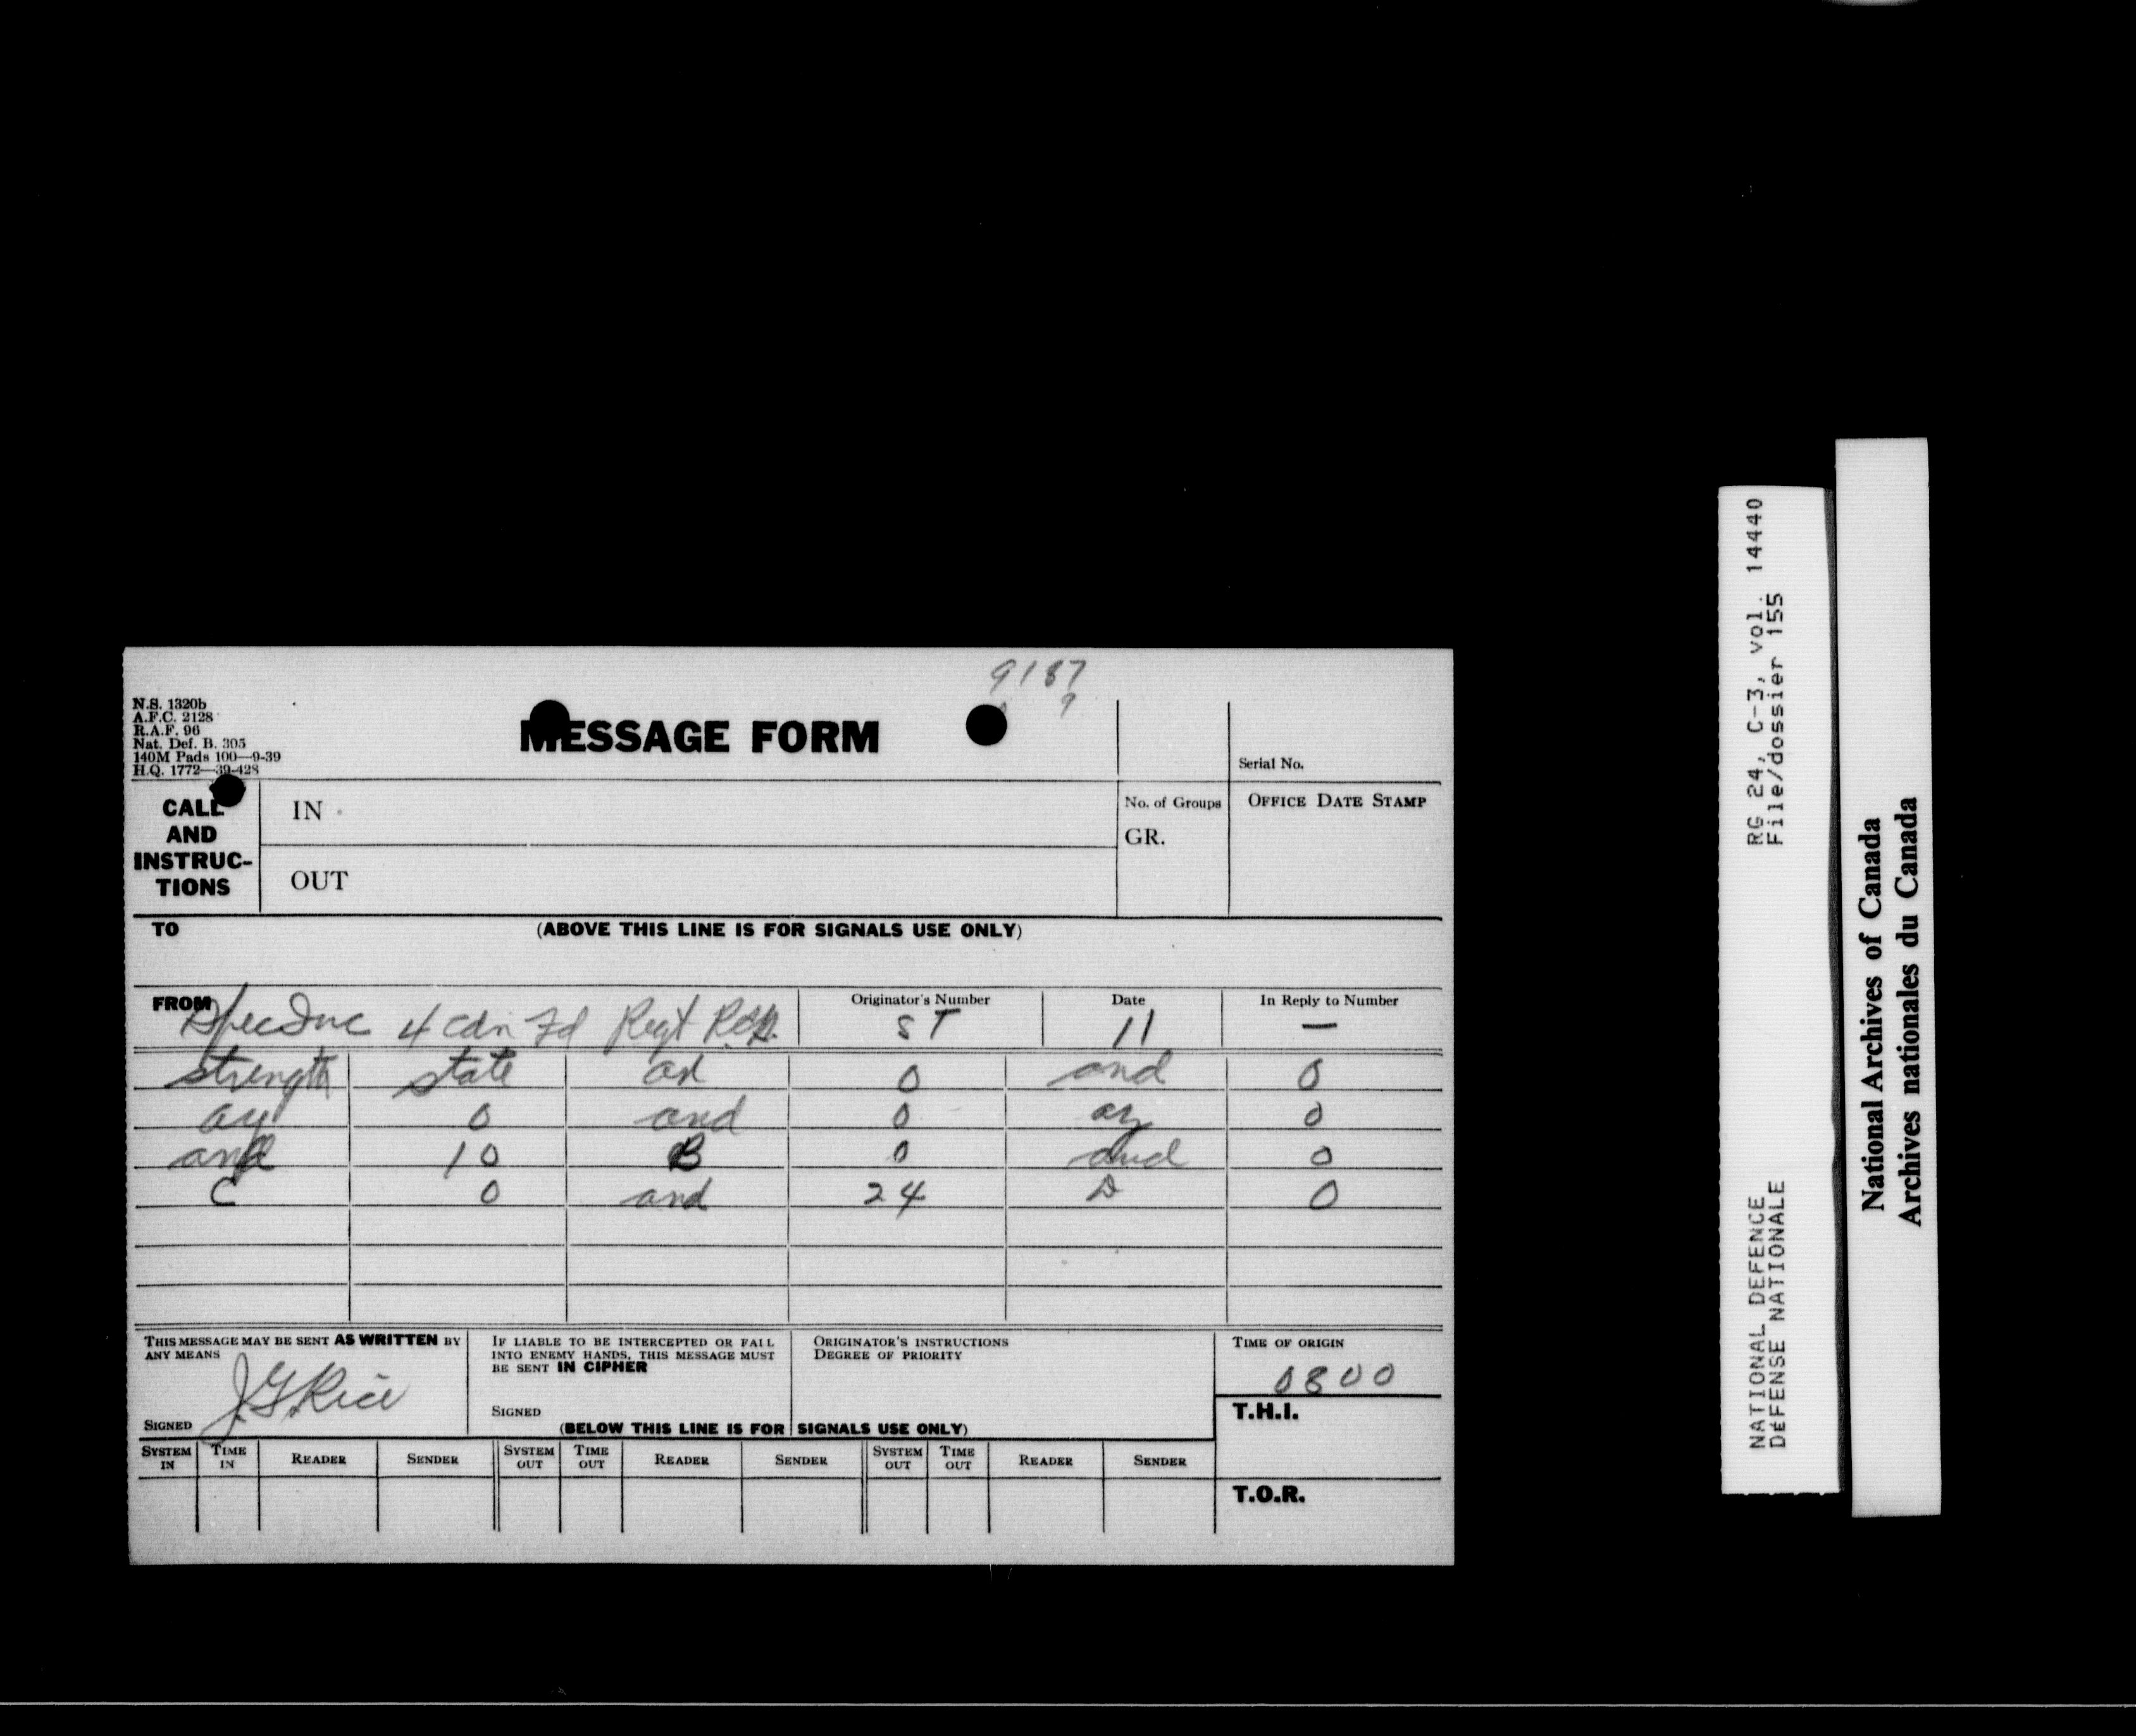 9187
9
N.S. 1320b
A.F.C. 2128
R.A.F. 96
Nat. Def. B. 305
140M Pads 100—9-39
H.Q. 1772—39-428
MESSAGE FORM
Serial No.
CALL AND INSTRUC-TIONS
IN
OUT
No. of Groups
GR.
OFFICE DATE STAMP
TO
(ABOVE THIS LINE IS FOR SIGNALS USE ONLY)
FROM
4 Cdn Fd Regt RCA
Originator's Number
ST
Date
11
In Reply to Number
—
strength state 0 and 0
ay 0 and 0 az 0
and 10 B 0 and 0
C 0 and 24 D 0
THIS MESSAGE MAY BE SENT AS WRITTEN BY
ANY MEANS
SIGNED J.G. Rice
IF LIABLE TO BE INTERCEPTED OR FALL
INTO ENEMY HANDS, THIS MESSAGE MUST
BE SENT IN CIPHER
SIGNED
ORIGINATOR'S INSTRUCTIONS
DEGREE OF PRIORITY
TIME OF ORIGIN
0800
T.H.I.
(BELOW THIS LINE IS FOR SIGNALS USE ONLY)
SYSTEM IN TIME IN READER SENDER SYSTEM OUT TIME OUT READER SENDER SYSTEM OUT TIME OUT READER SENDER
T.O.R.
NATIONAL DEFENCE RG 24, C-3, vol. 14440
DÉFENSE NATIONALE File/dossier 155
National Archives of Canada
Archives nationales du Canada